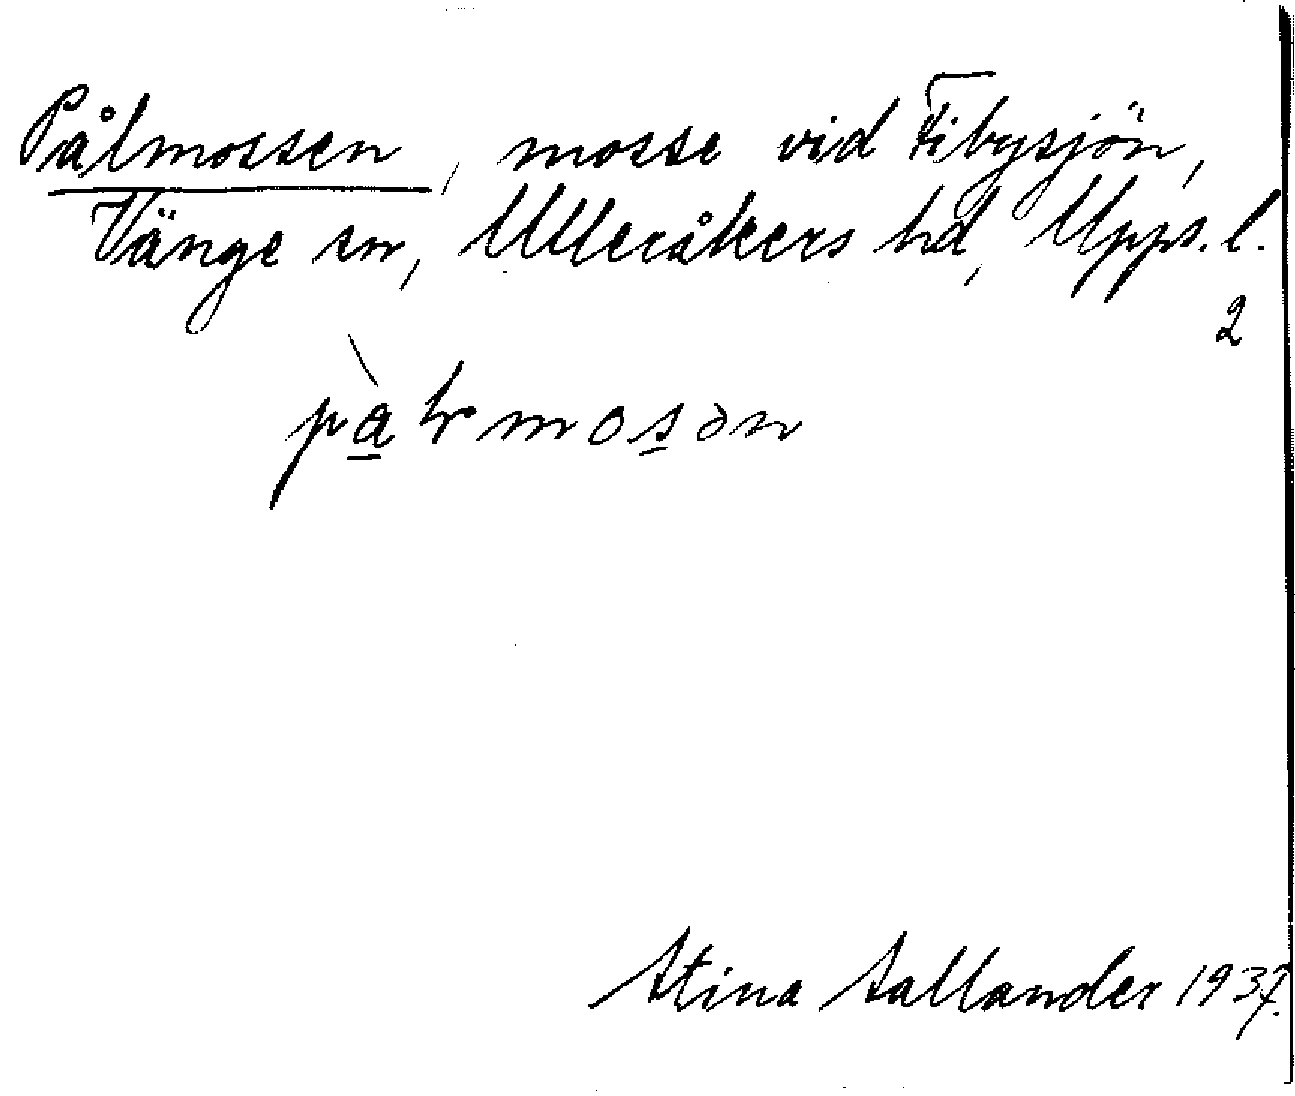 Pålmossen, mosse vid Fibysjön,
Vänge sn, Ulleråkers hd, Upps. l.
2
Stina Sallander 1937.